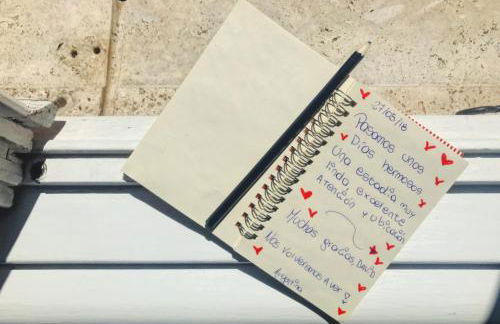 27/03/18
Pasamos unos
Días hermosos
Una estadia muy
linda, excelente
Atención y ubicación
Muchas gracias, DAVID
Nos volveremos A ver